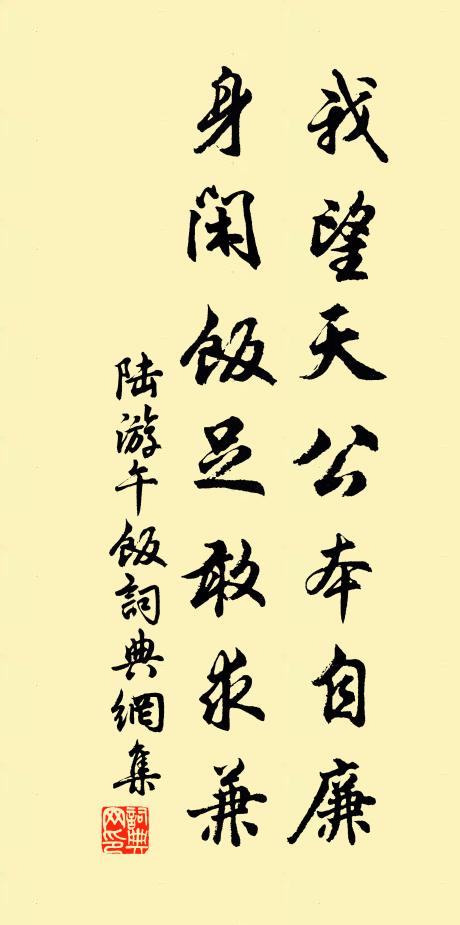 我望天公本自廉
身閑飯足敢求兼
陆游午飯詞典網集
詞典网印